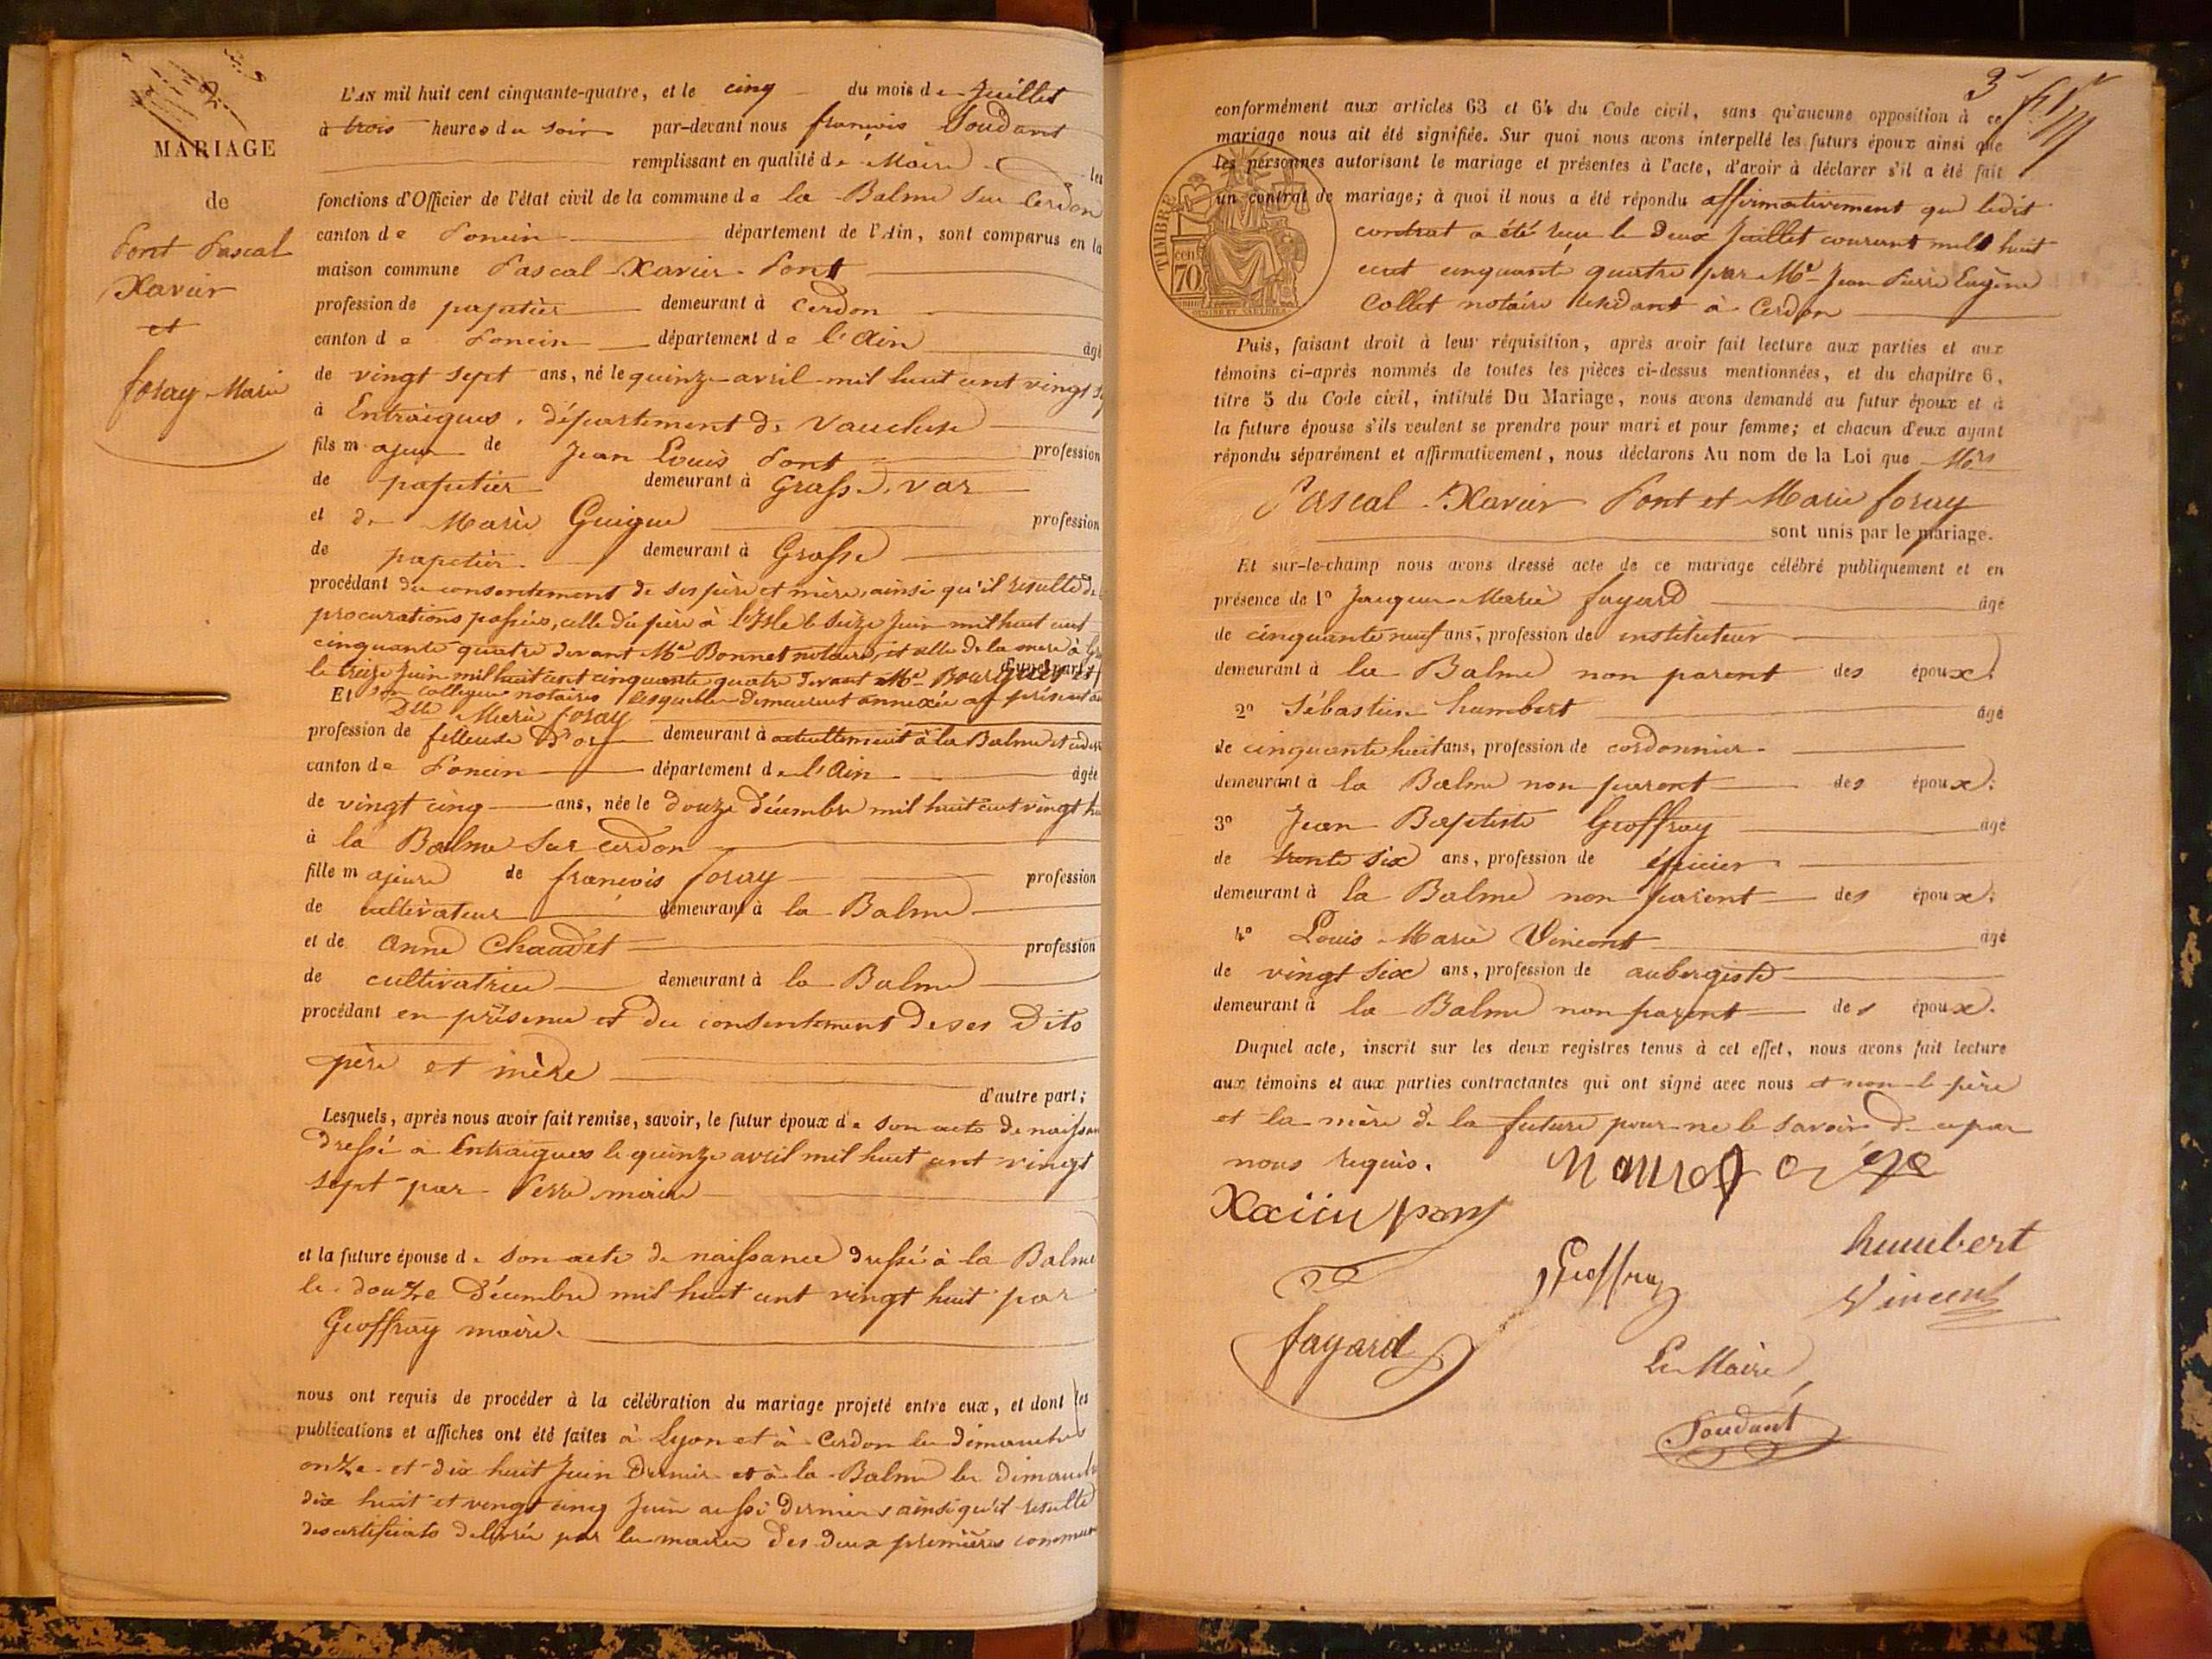 2
MARIAGE
de
Pont Pascal
Xavier
et
foray Marie
L'AN mil huit cent cinquante-quatre, et le cinq du mois de Juillet
à trois heures du soir par-devant nous françois Soudant
remplissant en qualité de Maire les
fonctions d'Officier de l'état civil de la commune de la Balme sur Cerdon
canton de Poncin département de l'Ain, sont comparus en la
maison commune Pascal Xavier Pont
profession de papetier demeurant à Cerdon
canton de Poncin département de l'Ain âgé
de vingt sept ans, né le quinze avril mil huit cent vingt
à Entraigues, département de Vaucluse
fils majeur de Jean Louis Pont profession
de papetier demeurant à Grasse, var
et de Marie Guigue profession
de papetier demeurant à Grasse
procédant du consentement de ses père et mère, ainsi qu'il résulte de
procurations passées, celle du père à l'Isle le seize Juin mil huit cent
cinquante quatre devant Me Bonnet notaire, et celle de la mère à
le treize Juin mil huit cent cinquante quatre devant Me d'une part;
Et son collègue notaires lesquelles demeurent annexées au présent
Dlle Marie foray
profession de fileuse d'or demeurant à actuellement à la Balme
canton de Poncin département de l'Ain âgée
de vingt cinq ans, née le douze décembre mil huit cent vingt
à la Balme sur cerdon
fille majeure de françois foray profession
de cultivateur demeurant à la Balme
et de Anne Chaudet profession
de cultivatrice demeurant à la Balme
procédant en présence et du consentement de ses dits
père et mère
d'autre part;
Lesquels, après nous avoir fait remise, savoir, le futur époux de son acte de
dressé à Entraigues le quinze avril mil huit cent vingt
sept par maire
et la future épouse de son acte de naissance dressé à la Balme
le douze décembre mil huit cent vingt huit par
Geoffray maire.
nous ont requis de procéder à la célébration du mariage projeté entre eux, et dont les
publications et affiches ont été faites à Lyon et à Cerdon les dimanches
onze et dix huit Juin dernier et à la Balme les dimanches
dix huit et vingt cinq Juin aussi derniers ainsi qu'il résulte
des certificats délivrés par les maires des deux premières
3
conformément aux articles 63 et 64 du Code civil, sans qu'aucune opposition à ce
mariage nous ait été signifiée. Sur quoi nous avons interpellé les futurs époux ainsi que
les personnes autorisant le mariage et présentes à l'acte, d'avoir à déclarer s'il a été fait
un contrat de mariage; à quoi il nous a été répondu affirmativement que ledit
contrat a été reçu le deux Juillet courant mil huit
cent cinquante quatre par Me Jean Pierre Eugène
Collet notaire résidant à Cerdon
TIMBRE
cen
70
Puis, faisant droit à leur réquisition, après avoir fait lecture aux parties et aux
témoins ci-après nommés de toutes les pièces ci-dessus mentionnées, et du chapitre 6,
titre 5 du Code civil, intitulé Du Mariage, nous avons demandé au futur époux et à
la future épouse s'ils veulent se prendre pour mari et pour femme; et chacun d'eux ayant
répondu séparément et affirmativement, nous déclarons Au nom de la Loi que
Pascal Xavier Pont et Marie foray
sont unis par le mariage.
Et sur-le-champ nous avons dressé acte de ce mariage célébré publiquement et en
présence de 1° Jacques Marie fayard âgé
de cinquante neuf ans, profession de instituteur
demeurant à la Balme non parent des époux;
2° Sébastien humbert âgé
de cinquante huit ans, profession de cordonnier
demeurant à la Balme non parent des époux;
3° Jean Baptiste Geoffray âgé
de trente six ans, profession de épicier
demeurant à la Balme non parent des époux;
4° Louis Marie Vincent âgé
de vingt six ans, profession de aubergiste
demeurant à la Balme non parent des époux.
Duquel acte, inscrit sur les deux registres tenus à cet effet, nous avons fait lecture
aux témoins et aux parties contractantes qui ont signé avec nous et non le père
et la mère de la future pour ne le savoir de ce par
nous requis.
Xavier pont
humbert
Geoffray
Vincent
fayard
Le Maire,
Soudant